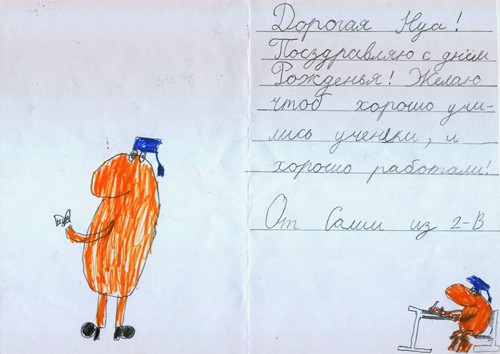 Дорогая Нуа!
Посздравляю с днём
Рожденья! Желаю
чтоб хорошо учи-
лись ученеки, и
хорошо работали!
От Саши из 2-В